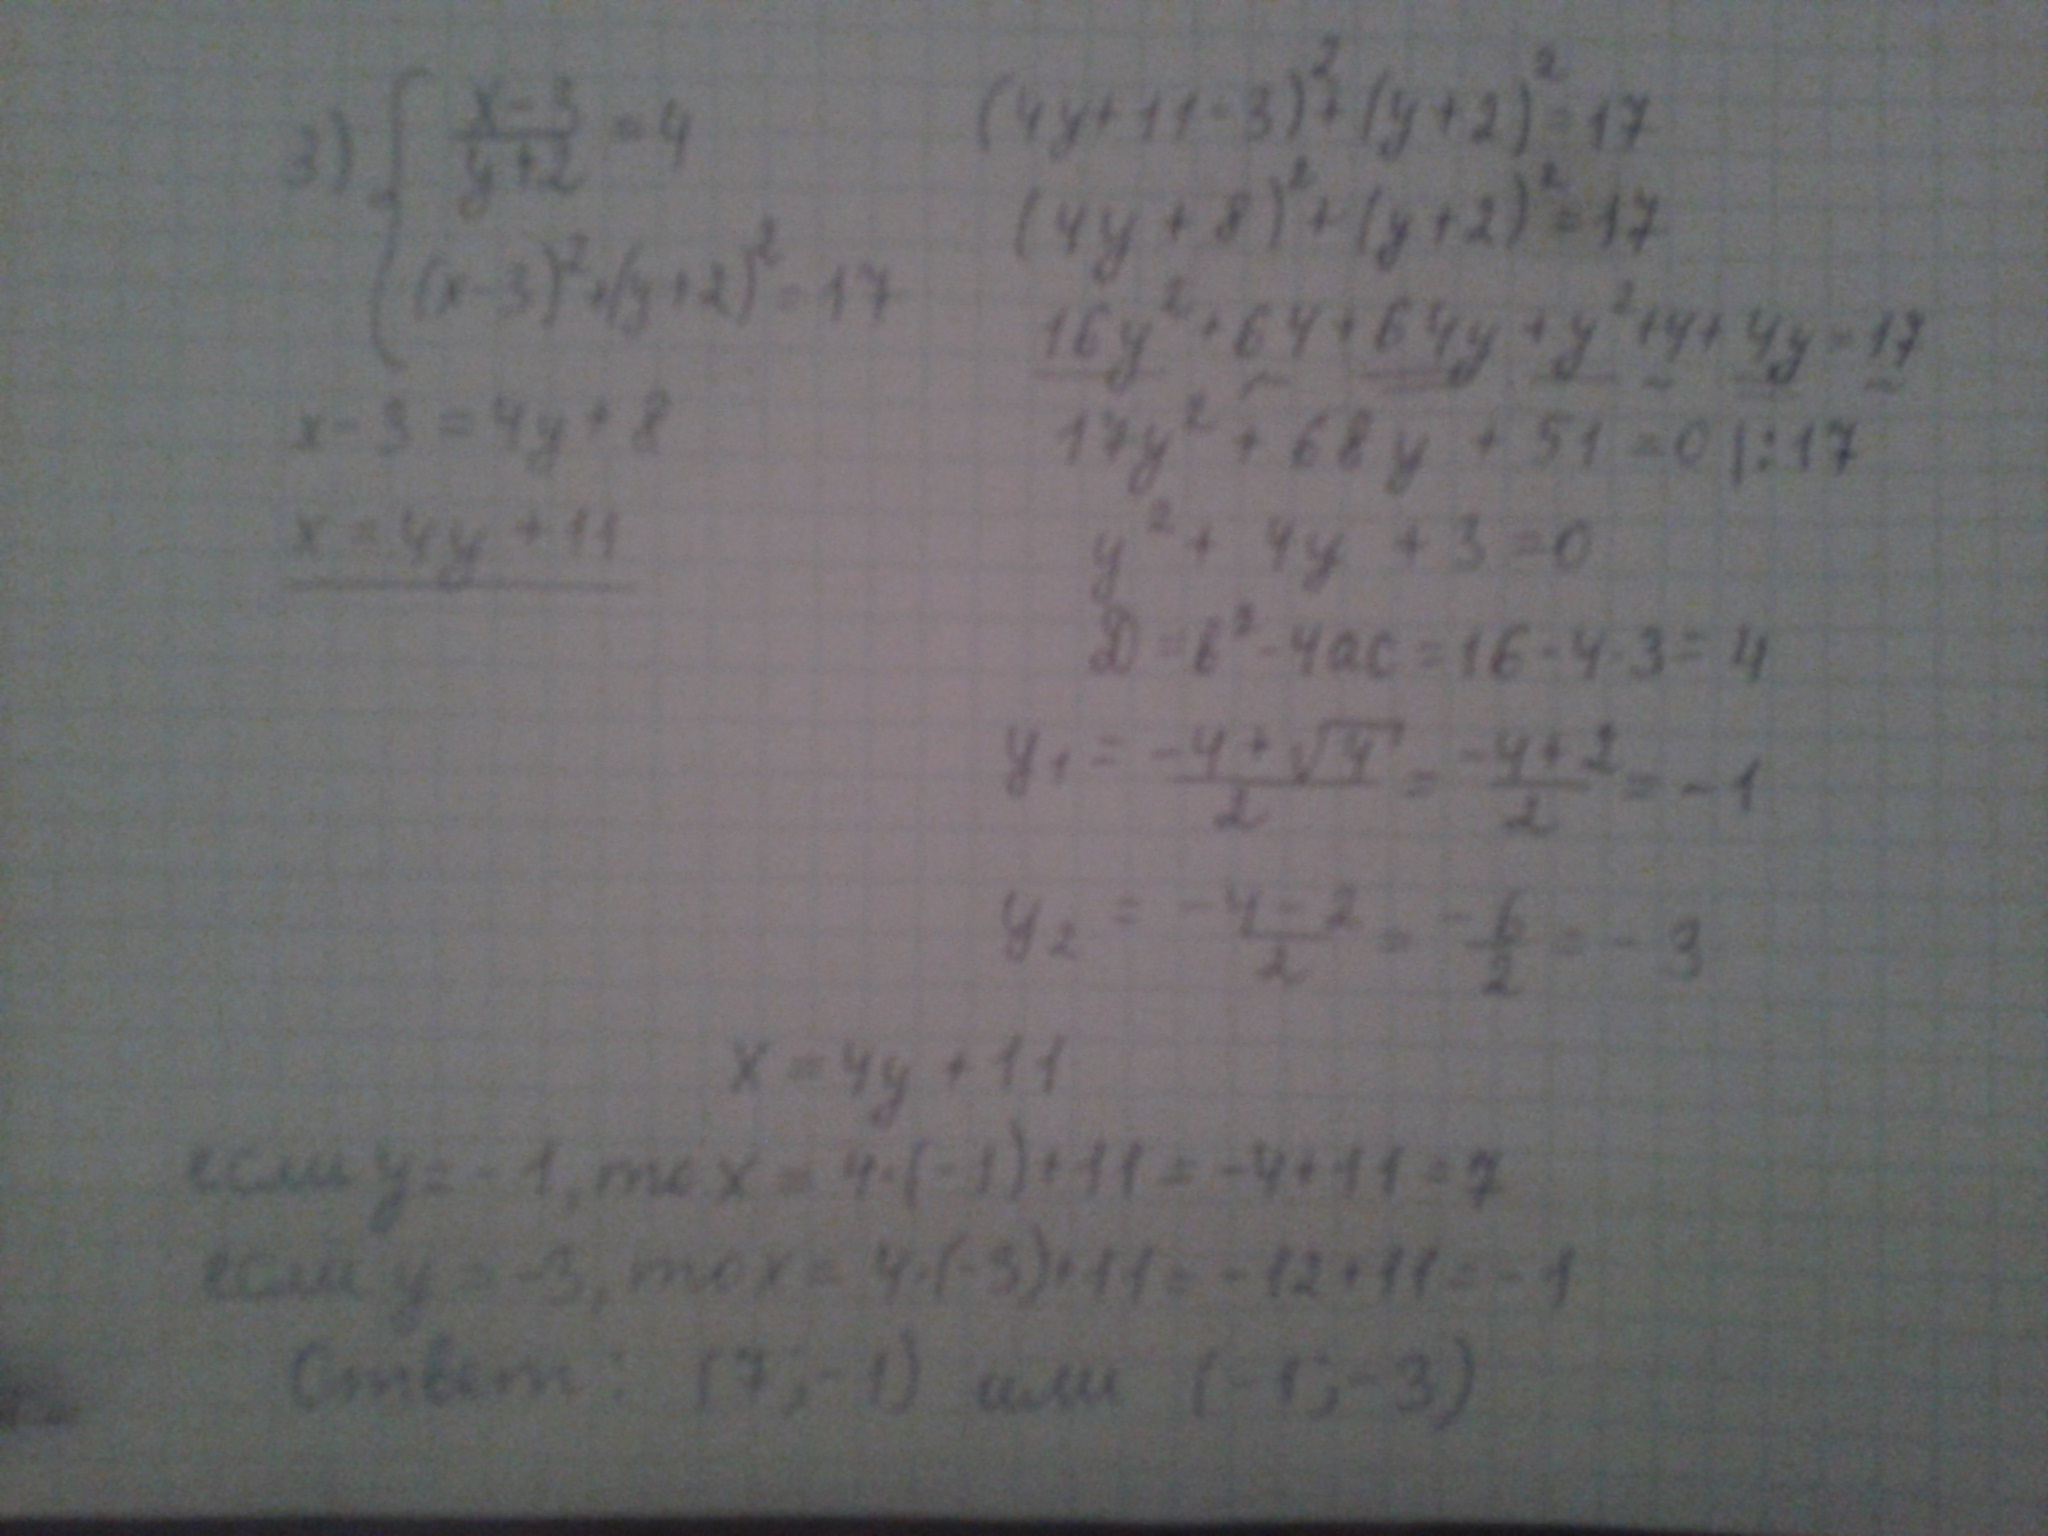 3) { x-3/y+2 = 4
(x-3)²+(y+2)²=17
x-3=4y+8
x=4y+11
(4y+11-3)²+(y+2)²=17
(4y+8)²+(y+2)²=17
16y²+64+64y+y²+4+4y=17
17y²+68y+51=0 |:17
y²+4y+3=0
D=b²-4ac=16-4·3=4
y₁ = -4+√4/2 = -4+2/2 = -1
y₂ = -4-2/2 = -6/2 = -3
x=4y+11
если y=-1, то x=4·(-1)+11=-4+11=7
если y=-3, то x=4·(-3)+11=-12+11=-1
Ответ: (7;-1) или (-1;-3)